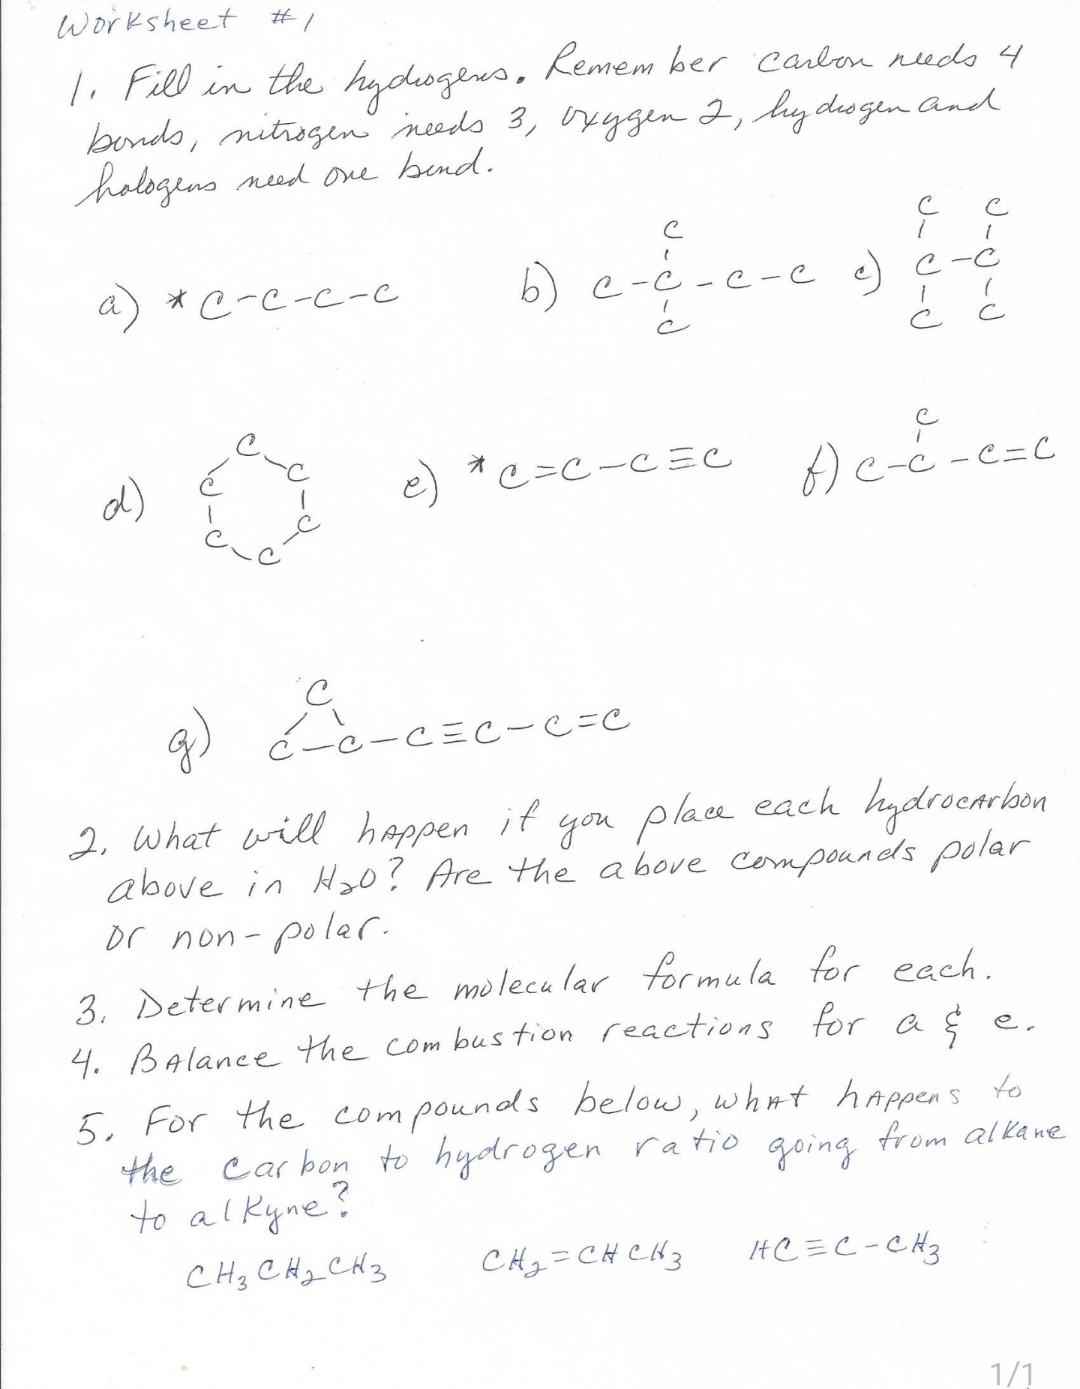 Worksheet #1
1. Fill in the hydrogens. Remember carbon needs 4
bonds, nitrogen needs 3, oxygen 2, hydrogen and
halogens need one bond.
C C C
a) *C-C-C-C b) C-C-C-C c) C-C
C C C
C
d) C C C C C C e) *C=C-C≡C f) C-C-C=C
C
g) C-C-C≡C-C=C
2. What will happen if you place each hydrocarbon
above in H₂O? Are the above compounds polar
or non-polar.
3. Determine the molecular formula for each.
4. Balance the combustion reactions for a & e.
5. For the compounds below, what happens to
the carbon to hydrogen ratio going from alkane
to alkyne?
CH₃CH₂CH₃ CH₂=CHCH₃ HC≡C-CH₃
1/1